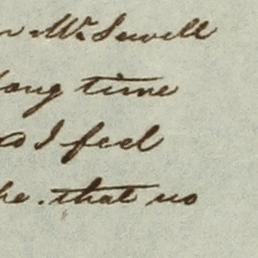 Mr. Sewell
long time
I feel
he. that no